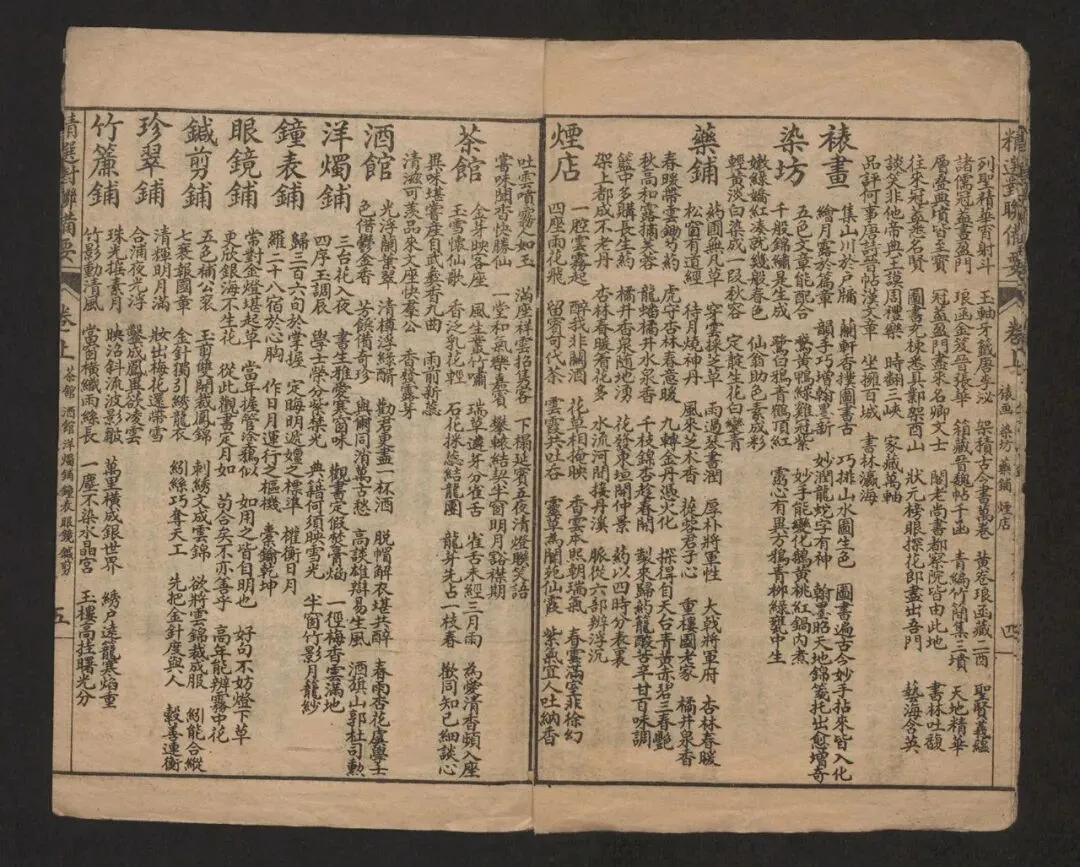 精選對聯備要 卷上 裱画 染坊 藥鋪 煙店 四
列聖精華宵射斗 玉軸牙籤居李泌 架積古今書萬卷 黃卷琅函藏二酉 聖賢義蘊
諸儒冠蓋書盈門 琅函金笈晉張華 箱藏晉魏帖千函 青編竹簡集三墳 天地精華
層疊典墳皆至寶 冠蓋盈門盡來名卿文士 閣老尚書都察院皆由此地 書林吐馥
往來冠蓋悉名賢 圖書充棟悉具鄴架酉山 狀元榜眼探花郎盡出吾門 藝海含英
談笑非他帝典王謨周禮樂 時翻三峽 家藏萬軸
品評何事唐詩晉帖漢文章 坐擁百城 書林瀛海
裱畫
集山川於戶牖 蘭軒香撲圖書古 巧排山水圖生色 圖書遍古今妙手拈來皆入化
繪月露於篇章 韻手巧增翰墨新 妙潤龍蛇字有神 翰墨昭天地錦箋托出愈增奇
染坊
五色文章能配合 鵞黃鴨綠雞冠紫 妙手能變化鵝黃桃紅鍋內煮
千般錦繡是生成 鷺白鴉青鶴頂紅 靈心有異方鴉青柳綠甕中生
嫩綠嬌紅凑就幾般春色 仙翁助色素成彩
輕黃淡白染成一段秋容 定教生花白變青
藥鋪
葯圃無凡草 穿雲採芝草 雨過琴書潤 厚朴將軍性 大戟將軍府 杏林春暖
松窗有道經 待月燒神丹 風來芝术香 蓯蓉君子心 重樓國老家 橘井泉香
春暖帶雲鋤芍葯 虎守杏林春意暖 九轉金丹憑火化 採得自天台青黃赤碧三春艷
秋高和露摘芙蓉 龍蟠橘井水泉香 千枝錦杏趁春開 製來歸葯籠酸苦辛甘百味調
籃中多購長生葯 橘井香泉隨地湧 花發東垣開仲景 葯以四時分表裏
架上都成不老丹 杏林春暖看花多 水流河間接丹溪 脈從六部辨浮沉
煙店
一腔雲霧起 醉我非關酒 花草相掩映 香雲本照朝瑞氣 春雲滿室非徐幻
四座雨花飛 留賓可代茶 雲霞共吐吞 靈草為開苑仙霞 紫氣宜人吐納香
吐雲噴霧人如玉 滿座祥雲招集客 下榻延賓五夜清燈聯笑語
嘗味聞香快勝仙 一堂和氣樂嘉賓 攀轅結契半窗明月路襟期
茶館
金芽映客座 風生叢竹嘯 瑞草遺芽分雀舌 雀舌未經三月雨 為愛清香頻入座
玉雪懷仙歌 香泛乳花輕 石花採焙結龍團 龍芽先占一枝春 歡同知已細談心
異味堪嘗產自武彝香九曲 雨前新蘂
清滋可羨品來文座快羣公 香發露芽
酒館
光浮蘭葉翠 清樽浮綠醑 勸君更盡一杯酒 脫帽解衣堪共醉 春雨杏花虞學士
色借鬱金香 芳餙備奇珍 與爾同消萬古愁 高談雄辯易生風 酒旗山郭杜司勲
洋燭鋪
三台花入夜 書生雅愛寒窗味 觀書定假焚膏焰 一徑梅香雲滿地
四序玉調辰 學士榮分紫禁光 典籍何須映雪光 半窗竹影月籠紗
鐘表鋪
歸三百六旬於掌握 定晦明遞嬗之標準 權衡日月
羅二十八宿於心胸 作日月運行之樞機 橐籥乾坤
眼鏡鋪
常對金燈堪起草 當年握管渾鴉似 如用之皆自明也 好句不妨燈下草
更欣銀海不生花 從此觀書定月如 苟合矣不亦善乎 高年能辨霧中花
鍼剪鋪
五色補公衮 玉剪雙開裁鳳錦 刺綉文成雲錦 欲將雲錦裁成服 紉能合縱
七襄報國章 金針獨引綉龍衣 紉絲巧奪天工 先把金針度與人 縠善連衡
珍翠鋪
清輝明月滿 妝出梅花還帶雪
合浦夜光浮 鑿成鳳凰欲凌雲
竹簾鋪
珠光摇素月 映沼斜流波影皺 萬里橫成銀世界 綉戶遠籠寒焰重
竹影動清風 當窗橫織雨絲長 一塵不染水晶宮 玉樓高挂曙光分
精選對聯備要 卷上 茶館 酒館 洋燭鋪 鐘表 眼鏡 鍼剪 五